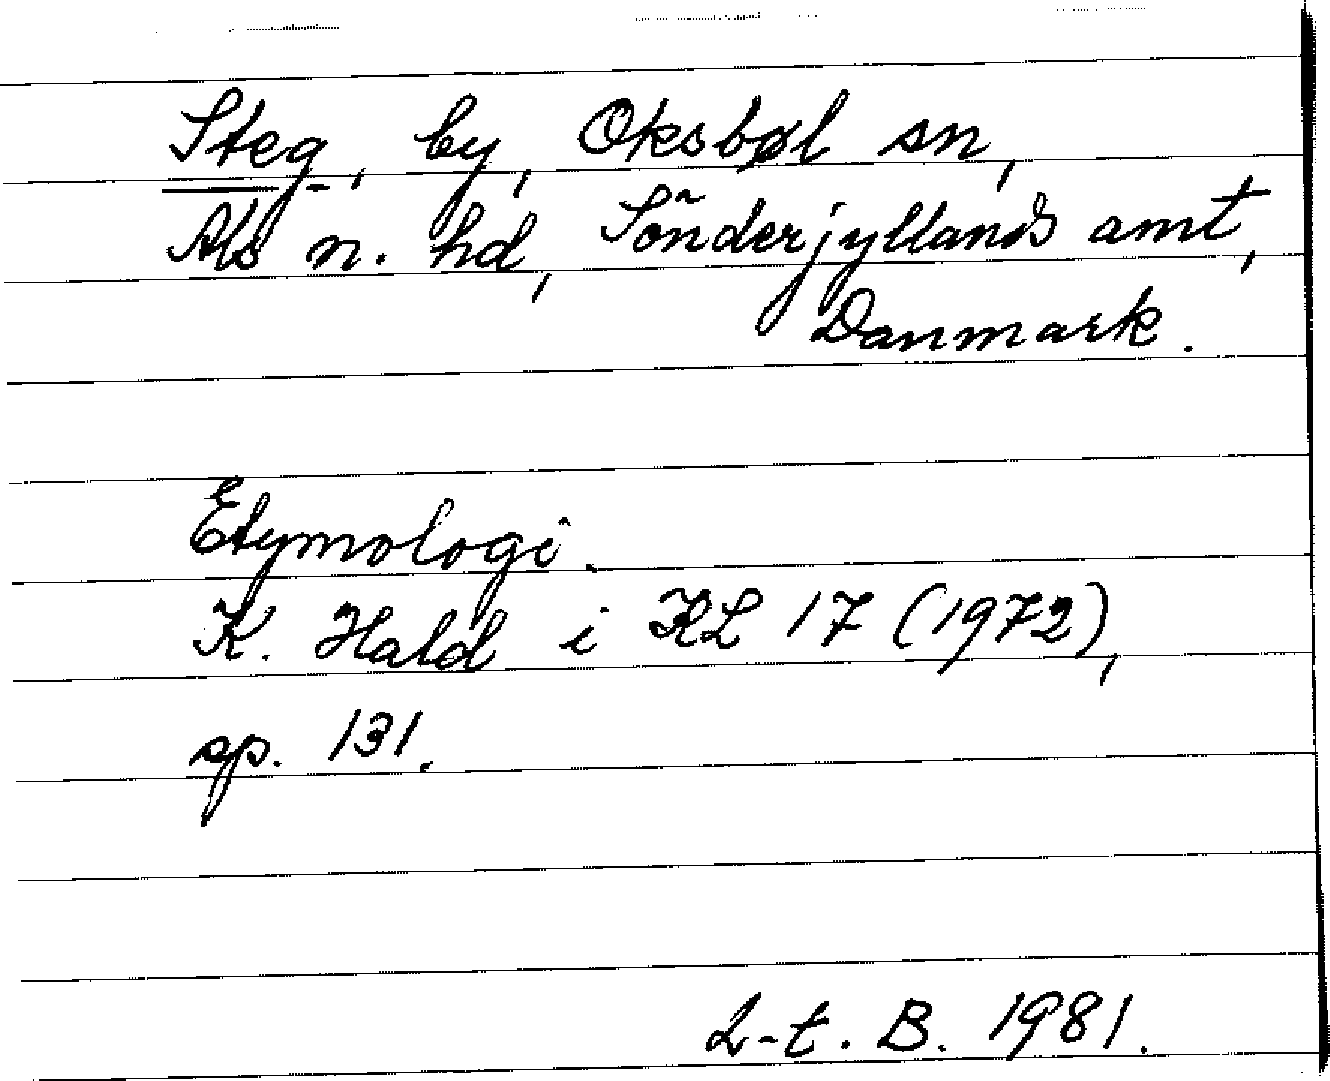 Steg, by, Oksbøl sn,
Als n. hd, Sönderjyllands amt,
Danmark.
Etymologi.
K. Hald i KL 17 (1972),
sp. 131.
L-t. B. 1981.